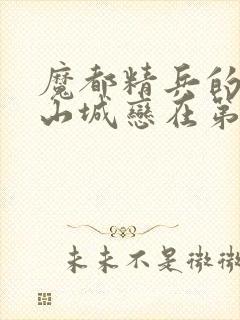 魔都精兵的
山城戀在第
未来不是微微